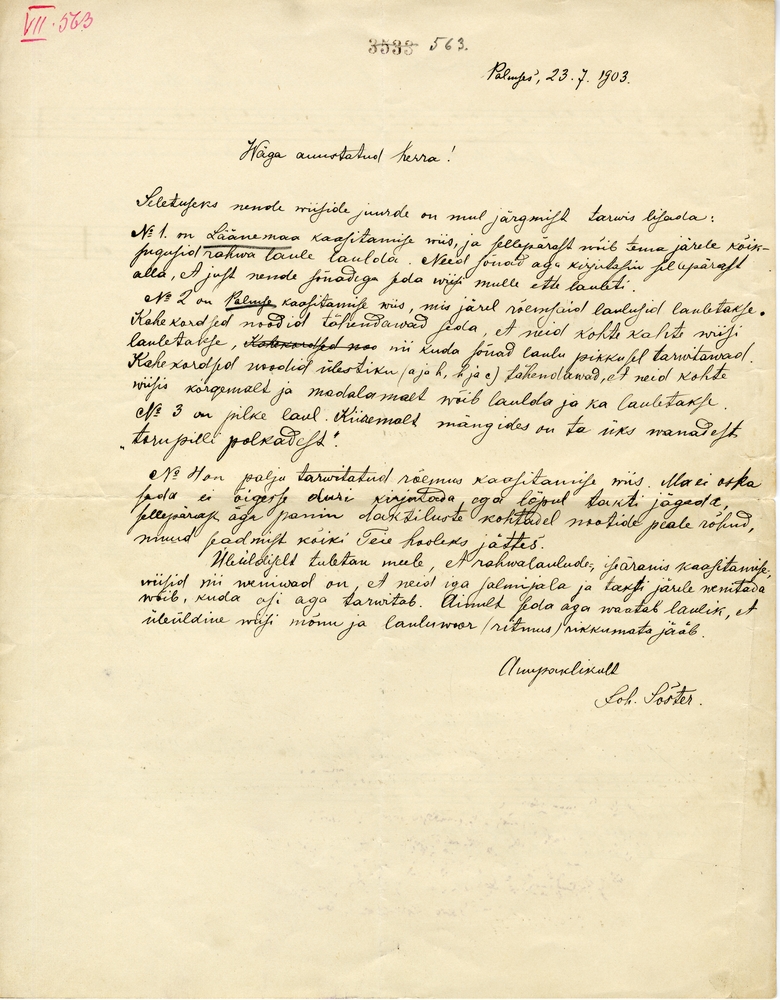 VII. 563
3533 563.
Palmses, 23. 7. 1903.
Wäga auustatud herra!
Seletuseks nende wiiside juurde on mul järgmist tarwis lisada:
№ 1. on Läänemaa kaasitamise wiis, ja sellepärast wõib tema järele kõik-
sugusid rahwa laule laulda. Need sõnad aga kirjutasin sellepärast
alla, et just nende sõnadega seda wiisi mulle ette lauleti.
№ 2 on Palmse kaasitamise wiis, mis järel rõemsaid laulusid lauletakse.
Kahekordsed noodid tähendawad seda, et neid kohte kahte wiisi
lauletakse, Kahekordsed noo nii kuda sõnad laulu pikkusel tarwitawad.
Kahekordsed noodid ülestiku (a ja h, h ja c) tähendawad, et neid kohte
wiisis kõrgemalt ja madalamalt wõib laulda ja ka lauletakse.
№ 3 on pilke laul. Kiiremalt mängides on ta üks wanadest
"torupilli polkadest".
№ 4 on palju tarwitatud rõemus kaasitamise wiis. Ma ei oska
seda ei õigesse duri kirjutada, ega lõpul takti jägada,
sellepärast aga panin daktiluste kohtadel nootide peale rõhud,
muud seadmist kõiki Teie hooleks jättes.
Üleüldiselt tuletan meele, et rahwalaulude, isäranis kaasitamise,
wiisid nii weniwad on, et neid iga salmijala ja takti järele wenitada
wõib, kuda asi aga tarwitab. Ainult seda aga waatab laulik, et
üleüldine wiisi mõnu ja lauluwoor (ritmus) rikkumata jääb.
Auupaklikult
Joh. Sõster.